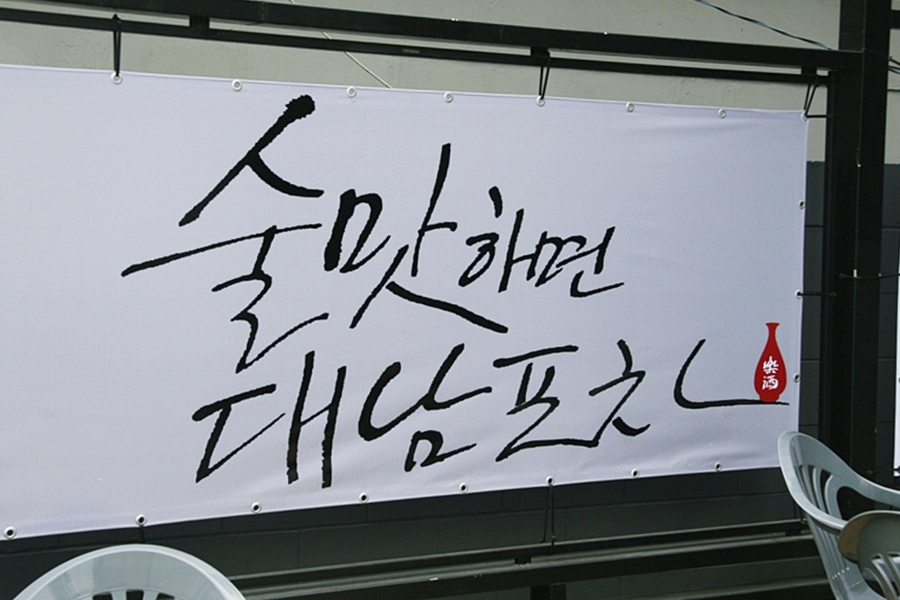 술맛하면
대남포차
樂酒